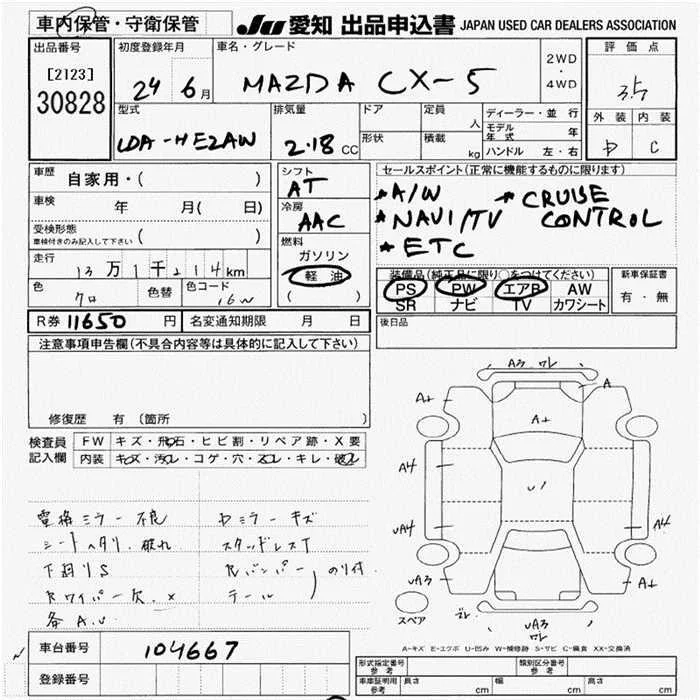 車内保管・守衛保管
JU 愛知 出品申込書 JAPAN USED CAR DEALERS ASSOCIATION
出品番号
[2123]
30828
初度登録年月
24年 6月
車名・グレード
MAZDA CX-5
2WD
・
4WD
評価点
3.5
外装 内装
C
型式
LDA-HEZAW
排気量
2.18 CC
ドア
形状
定員 人
積載 kg
ディーラー・並行
モデル年式 年
ハンドル 左・右
車歴 自家用・( )
車検 年 月( 日)
受検形態
車検付きのみ記入して下さい ( )
走行
13万1千214km
色 クロ
色替
色コード 16W
シフト
AT
冷房
AAC
燃料
ガソリン
軽油
( )
セールスポイント(正常に機能するものに限ります)
* A/W * CRUISE
* NAVI/TV CONTROL
* ETC
装備品(純正品に限り○をつけてください)
PS PW エアB AW
SR ナビ TV カワシート
新車保証書
有・無
R券 11650 円
名変通知期限 月 日
後日品
注意事項申告欄(不具合内容等は具体的に記入して下さい)
修復歴 有(箇所 )
検査員
記入欄
FW キズ・飛石・ヒビ割・リペア跡・X要
内装 キズ・汚れ・コゲ・穴・ヌレ・キレ・破れ
電格ミラー不良
シートヘタリ、破れ
下廻りS
Rワイパー欠、×
各A.U
スタッドレスT
Rバンパー
テール
A3 ワレ
A+
A
A+
A4
U1
UA4
A4
UA3
A+
UA3
ワレ
スペア
A-キズ E-エクボ U-凹み W-補修跡 S-サビ C-腐食 XX-交換済
車台番号 104667
登録番号
形式指定番号
参考
類別区分番号
参考
車庫証明用
参考
長さ cm
幅 cm
高さ cm